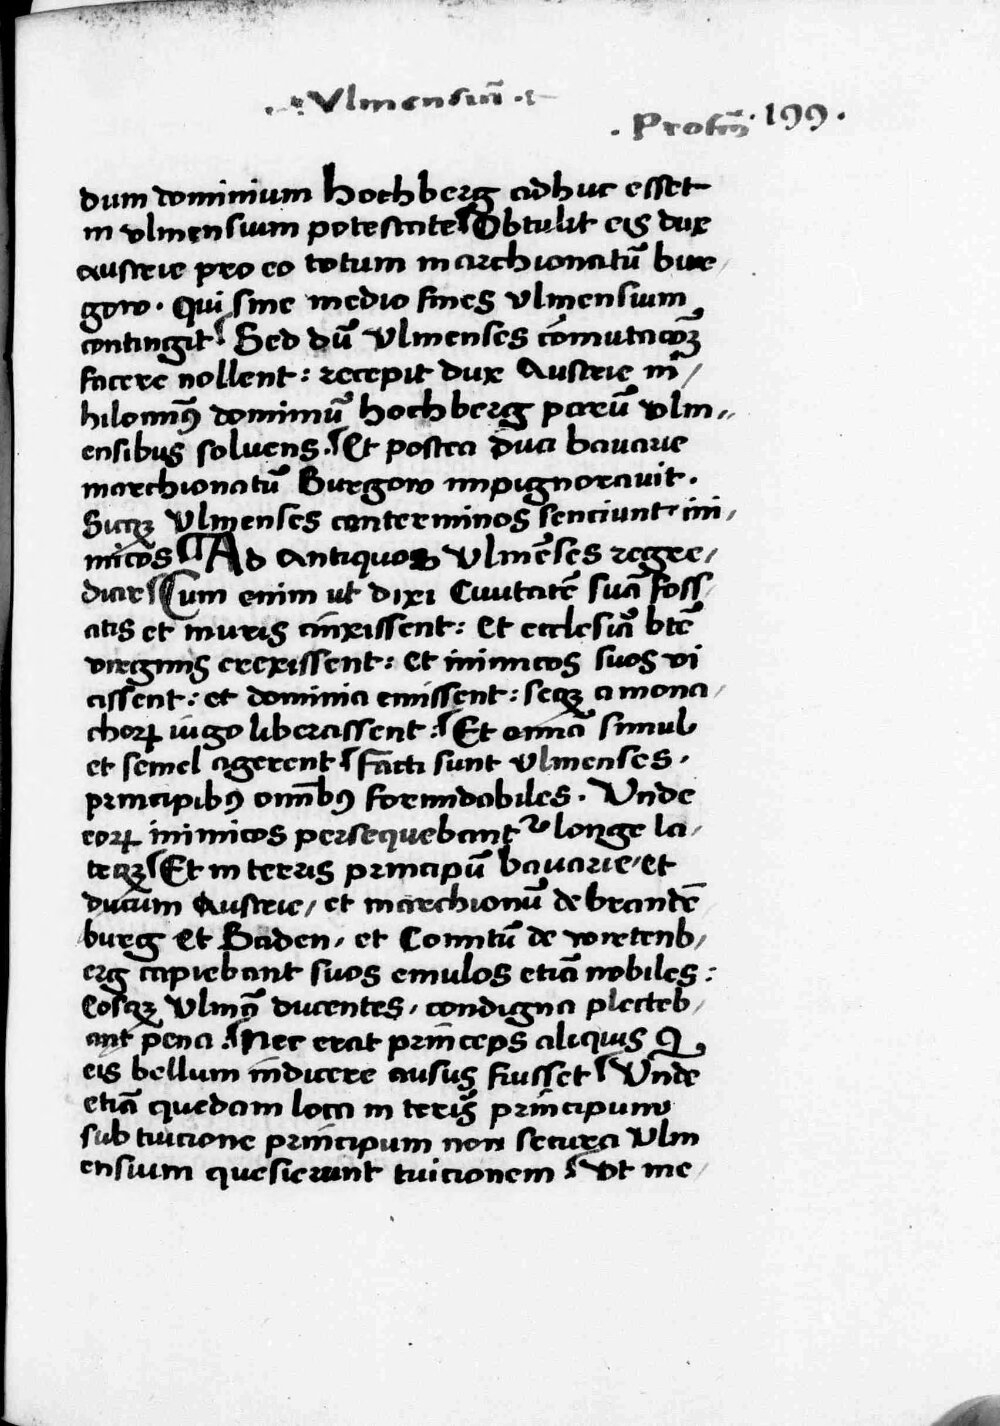 Vlmensiũ
Profect9 . 199 .
dum dominium Hochberg adhuc esset
in vlmensium potestate Obtulit eis dux
austrie pro eo totum marchionatũ bur-
gow . Qui sine medio fines vlmensium
contingit Sed dũ vlmenses cõmutacõꝫ
facere nollent : recepit dux Austrie ni-
hilomin9 dominiũ hochberg parũ vlm-
ensibus soluens . Et postea duci bauarie
marchionatũ Burgow inpignorauit .
Sicqꝫ vlmenses conterminos senciunt ini-
micos Ad Antiquos vlmẽses regre-
diar Cum enim ut dixi Ciuitatẽ suã foss-
atis et muris cinxissent : Et ecclesiã btẽ
virginis erexissent : et inimicos suos vi
cissent : et dominia emissent : seqꝫ a mona-
choꝝ iugo liberassent : Et omnia simul
et semel agerent Facti sunt vlmenses .
principib9 omnib9 formidabiles . Vnde
eoꝝ inimicos persequebantur longe la-
teqꝫ Et in terris principũ bauarie / et
ducum Austrie / et marchionũ de brandẽ
burg Et Baden / et Comitũ de wirtenb-
erg capiebant suos emulos etiã nobiles :
Eosqꝫ vlmã ducentes / condigna plecteb-
ant pena . Nec erat princeps aliquis Qui
eis bellum indicere ausus fuisset Vnde
etiã quedam loca in terris principum
sub tuicione principum non secura Vlm
ensium quesierunt tuicionem Vt me-